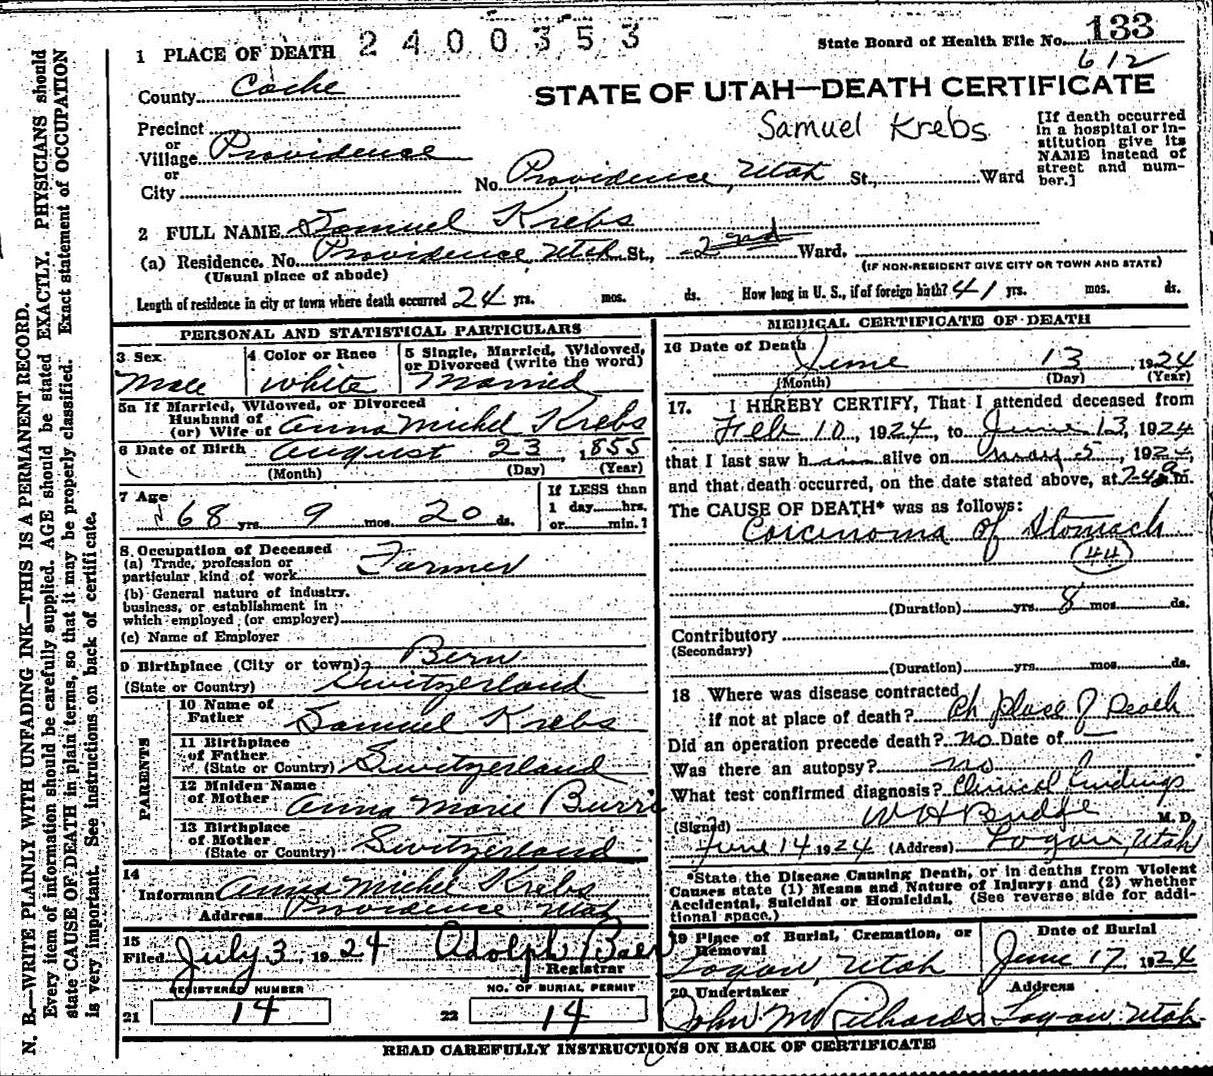 2400353
State Board of Health File No. 133
612
1 PLACE OF DEATH
County Cache
STATE OF UTAH—DEATH CERTIFICATE
Samuel Krebs
Precinct
or
Village Providence
or
City
No. Providence, Utah St., Ward
[If death occurred
in a hospital or in-
stitution give its
NAME instead of
street and num-
ber.]
2 FULL NAME Samuel Krebs
(a) Residence. No. Providence, Utah St., 2nd Ward.
(Usual place of abode)
(IF NON-RESIDENT GIVE CITY OR TOWN AND STATE)
Length of residence in city or town where death occurred 24 yrs. mos. ds. How long in U. S., if of foreign birth? 41 yrs. mos. ds.
PERSONAL AND STATISTICAL PARTICULARS
3 Sex.
Male
4 Color or Race
White
5 Single, Married, Widowed,
or Divorced (write the word)
Married
5a If Married, Widowed, or Divorced
Husband of
(or) Wife of Anna Michel Krebs
6 Date of Birth August 23, 1855
(Month) (Day) (Year)
7 Age
68 yrs. 9 mos. 20 ds.
If LESS than
1 day....hrs.
or....min.?
8. Occupation of Deceased
(a) Trade, profession or
particular kind of work Farmer
(b) General nature of industry.
business, or establishment in
which employed (or employer)
(c) Name of Employer
9 Birthplace (City or town) Bern
(State or Country) Switzerland
PARENTS
10 Name of
Father Samuel Krebs
11 Birthplace
of Father
(State or Country) Switzerland
12 Maiden Name
of Mother Anna Marie Burri
13 Birthplace
of Mother
(State or Country) Switzerland
14
Informan Anna Michel Krebs
Address Providence Utah
15
Filed July 3 1924 Adolph Baer
Registrar
REGISTERED NUMBER
21 14
NO. OF BURIAL PERMIT
22 14
MEDICAL CERTIFICATE OF DEATH
16 Date of Death June 13 1924
(Month) (Day) (Year)
17. I HEREBY CERTIFY, That I attended deceased from
Feb 10, 1924, to June 13, 1924
that I last saw him alive on May 5, 1924,
and that death occurred, on the date stated above, at m.
The CAUSE OF DEATH* was as follows:
Carcinoma of Stomach
44
(Duration) yrs. 8 mos. ds.
Contributory
(Secondary)
(Duration) yrs. mos. ds.
18 Where was disease contracted
if not at place of death? place of Death
Did an operation precede death? no Date of —
Was there an autopsy? no
What test confirmed diagnosis? Clinical findings
(Signed) W H Budge M. D.
June 14 1924 (Address) Logan, Utah
*State the Disease Causing Death, or in deaths from Violent
Causes state (1) Means and Nature of Injury; and (2) whether
Accidental, Suicidal or Homicidal. (See reverse side for addi-
tional space.)
19 Place of Burial, Cremation, or
Removal
Logan, Utah
Date of Burial
June 17, 1924
20 Undertaker
John M Richards
Address
Logan Utah
READ CAREFULLY INSTRUCTIONS ON BACK OF CERTIFICATE
N. B.—WRITE PLAINLY WITH UNFADING INK—THIS IS A PERMANENT RECORD.
Every item of information should be carefully supplied. AGE should be stated EXACTLY. PHYSICIANS should
state CAUSE OF DEATH in plain terms, so that it may be properly classified. Exact statement of OCCUPATION
is very important. See instructions on back of certificate.